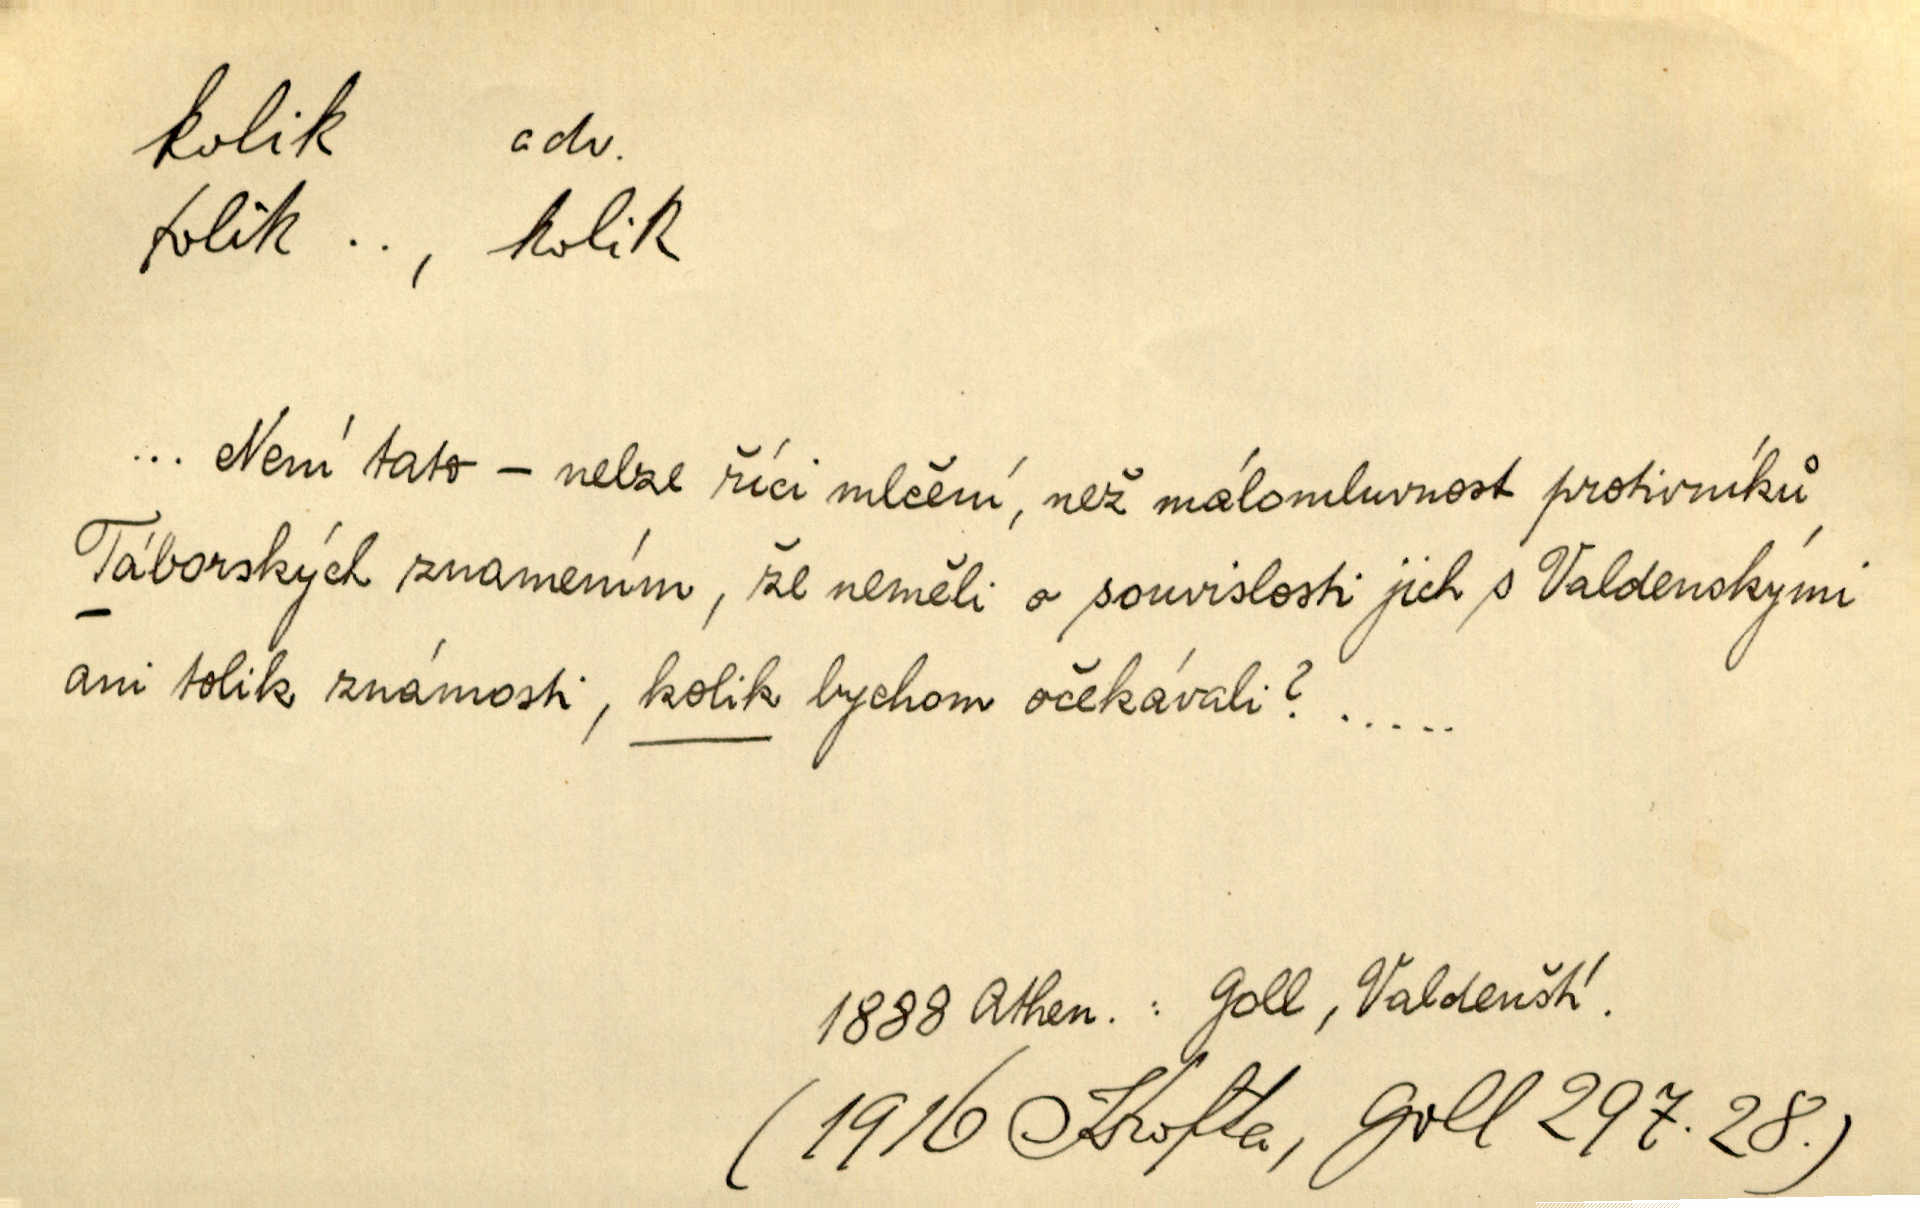 kolik adv.
tolik .., kolik
... Není tato – nelze říci mlčení, než málomluvnost protivníků
Táborských znamením, že neměli o souvislosti jich s Valdenskými
ani tolik známosti, kolik bychom očekávali? .....
1888 Athen. : Goll, Valdenští.
(1916 Krofta, Goll 297. 28.)